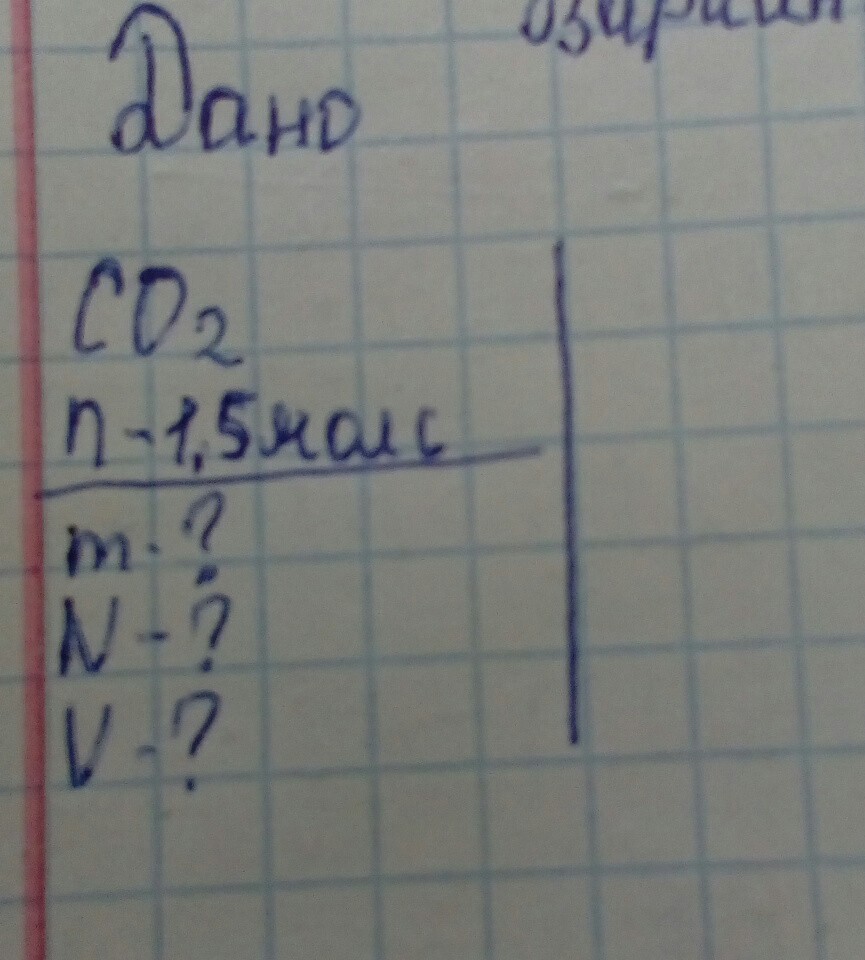 Дано
CO₂
n - 1,5 моль
m - ?
N - ?
V - ?